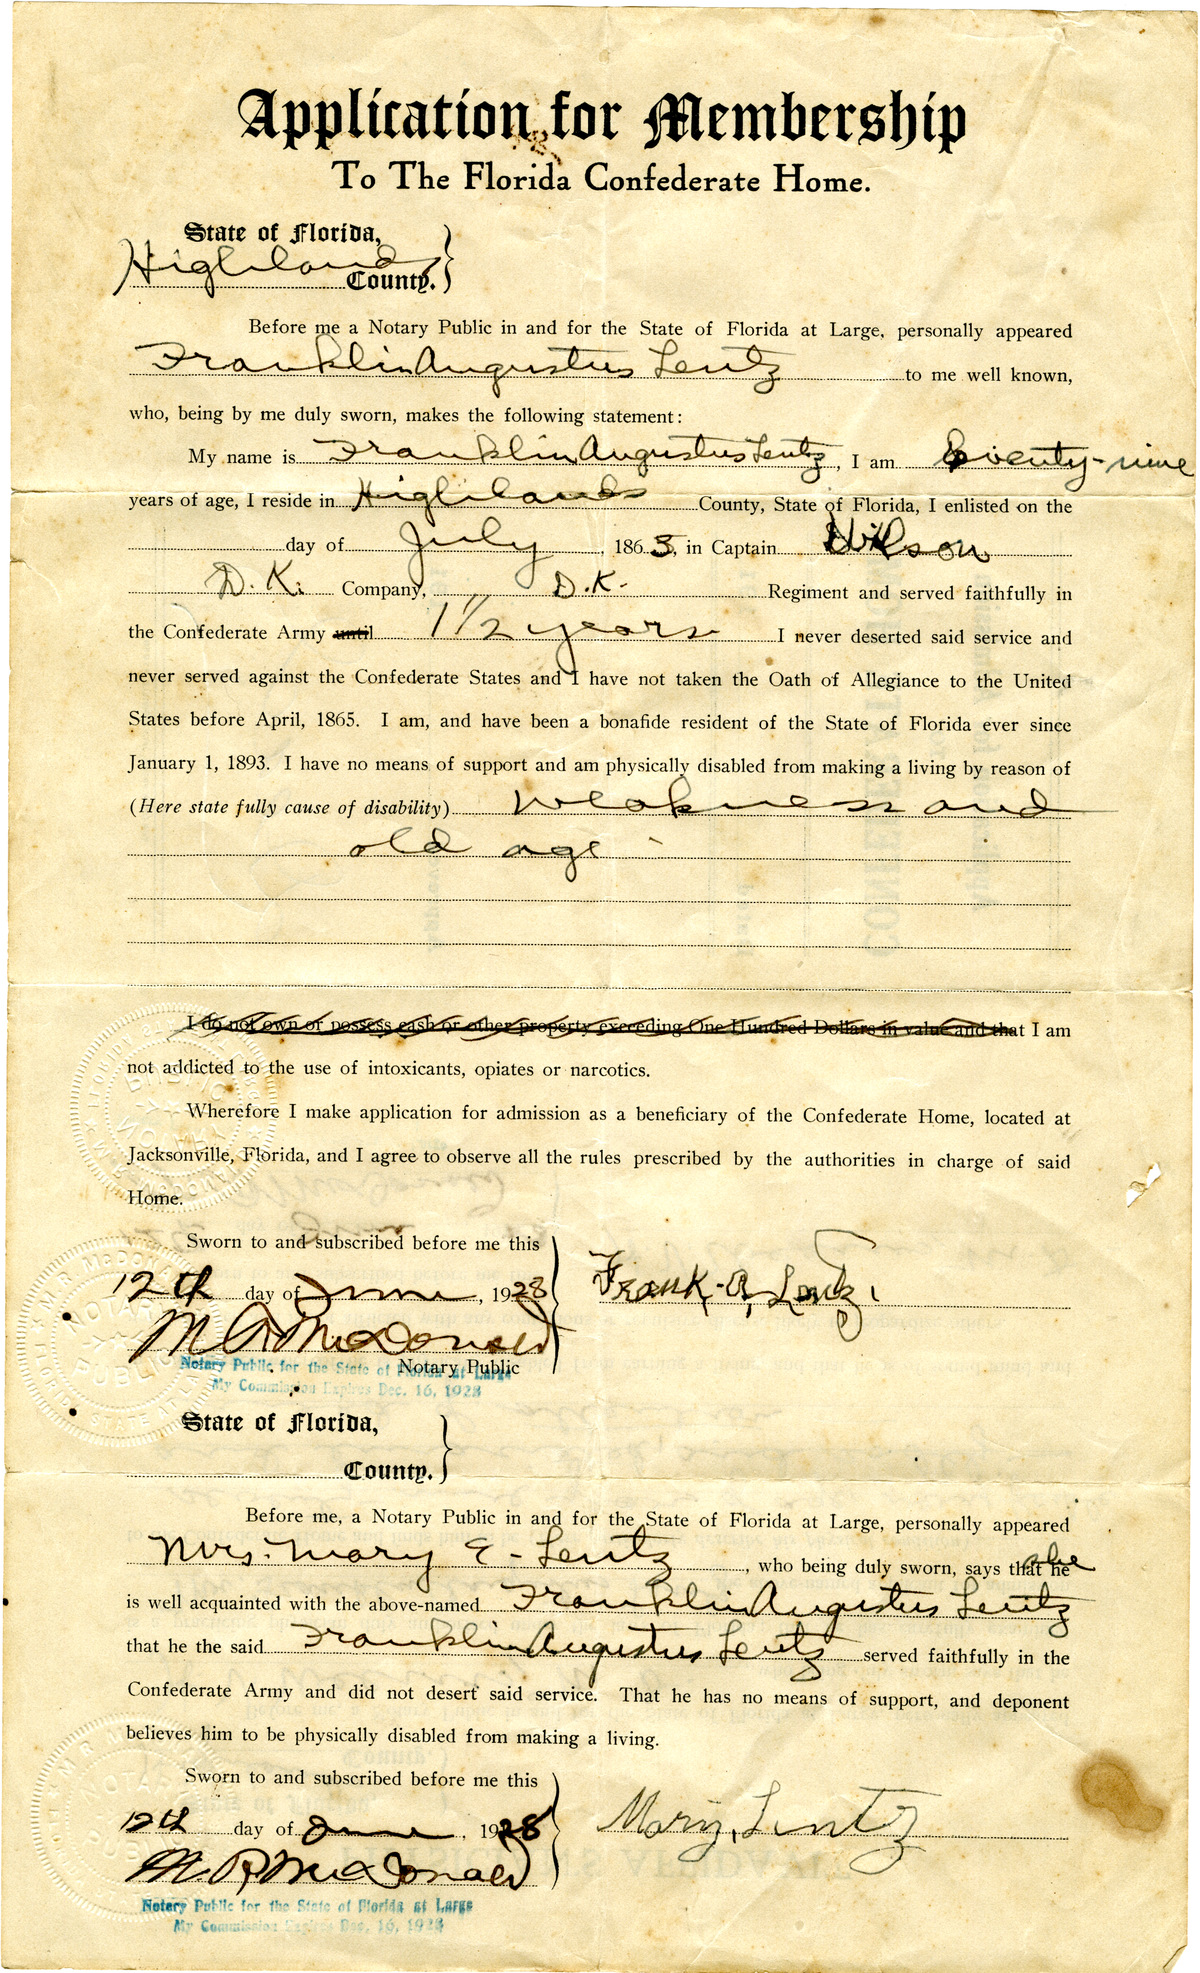 Application for Membership
To The Florida Confederate Home.
State of Florida,
Highlands County.
Before me a Notary Public in and for the State of Florida at Large, personally appeared
Franklin Augustus Lentz to me well known,
who, being by me duly sworn, makes the following statement:
My name is Franklin Augustus Lentz, I am
years of age, I reside in Highlands County, State of Florida, I enlisted on the
day of July, 1863, in Captain Wilson
D. K. Company, D. K. Regiment and served faithfully in
the Confederate Army until 1 1/2 years I never deserted said service and
never served against the Confederate States and I have not taken the Oath of Allegiance to the United
States before April, 1865. I am, and have been a bonafide resident of the State of Florida ever since
January 1, 1893. I have no means of support and am physically disabled from making a living by reason of
(Here state fully cause of disability) weakness and
old age
I do not own or possess cash or other property exceeding One Hundred Dollars in value and that I am
not addicted to the use of intoxicants, opiates or narcotics.
Wherefore I make application for admission as a beneficiary of the Confederate Home, located at
Jacksonville, Florida, and I agree to observe all the rules prescribed by the authorities in charge of said
Home.
Sworn to and subscribed before me this
12th day of June, 1928 Frank. A. Lentz.
M R McDonald
Notary Public
Notary Public for the State of Florida at Large
My Commission Expires Dec. 16, 1928
State of Florida,
County.
Before me, a Notary Public in and for the State of Florida at Large, personally appeared
Mrs. Mary E. Lentz, who being duly sworn, says that she
is well acquainted with the above-named Franklin Augustus Lentz
that he the said Franklin Augustus Lentz served faithfully in the
Confederate Army and did not desert said service. That he has no means of support, and deponent
believes him to be physically disabled from making a living.
Sworn to and subscribed before me this
12th day of June, 1928 Mary. Lentz
M. R. McDonald
Notary Public for the State of Florida at Large
My Commission Expires Dec. 16, 1928